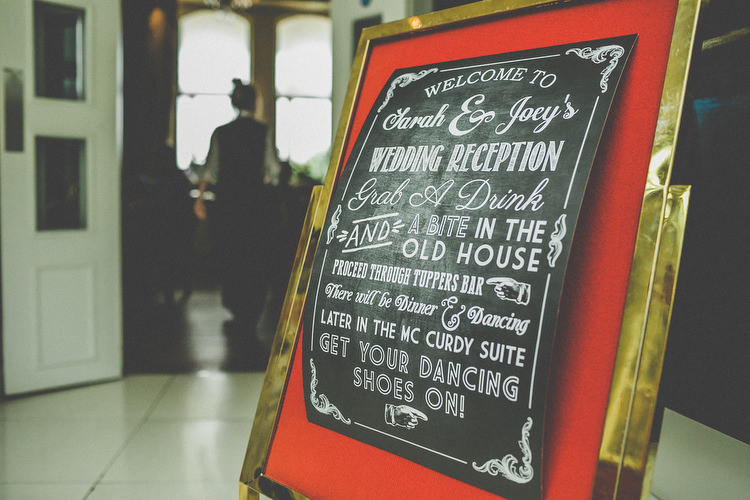 WELCOME TO
Sarah & Joey's
WEDDING RECEPTION
Grab A Drink
AND A BITE IN THE
OLD HOUSE
PROCEED THROUGH TUPPERS BAR
There will be Dinner & Dancing
LATER IN THE MC CURDY SUITE
GET YOUR DANCING
SHOES ON!